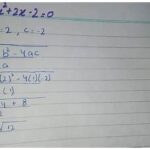 x²+2x-2=0
=2 , c=-2
b²-4ac
a
(2)²-4(1)(-2)
(1)
4 + 8
2
√12